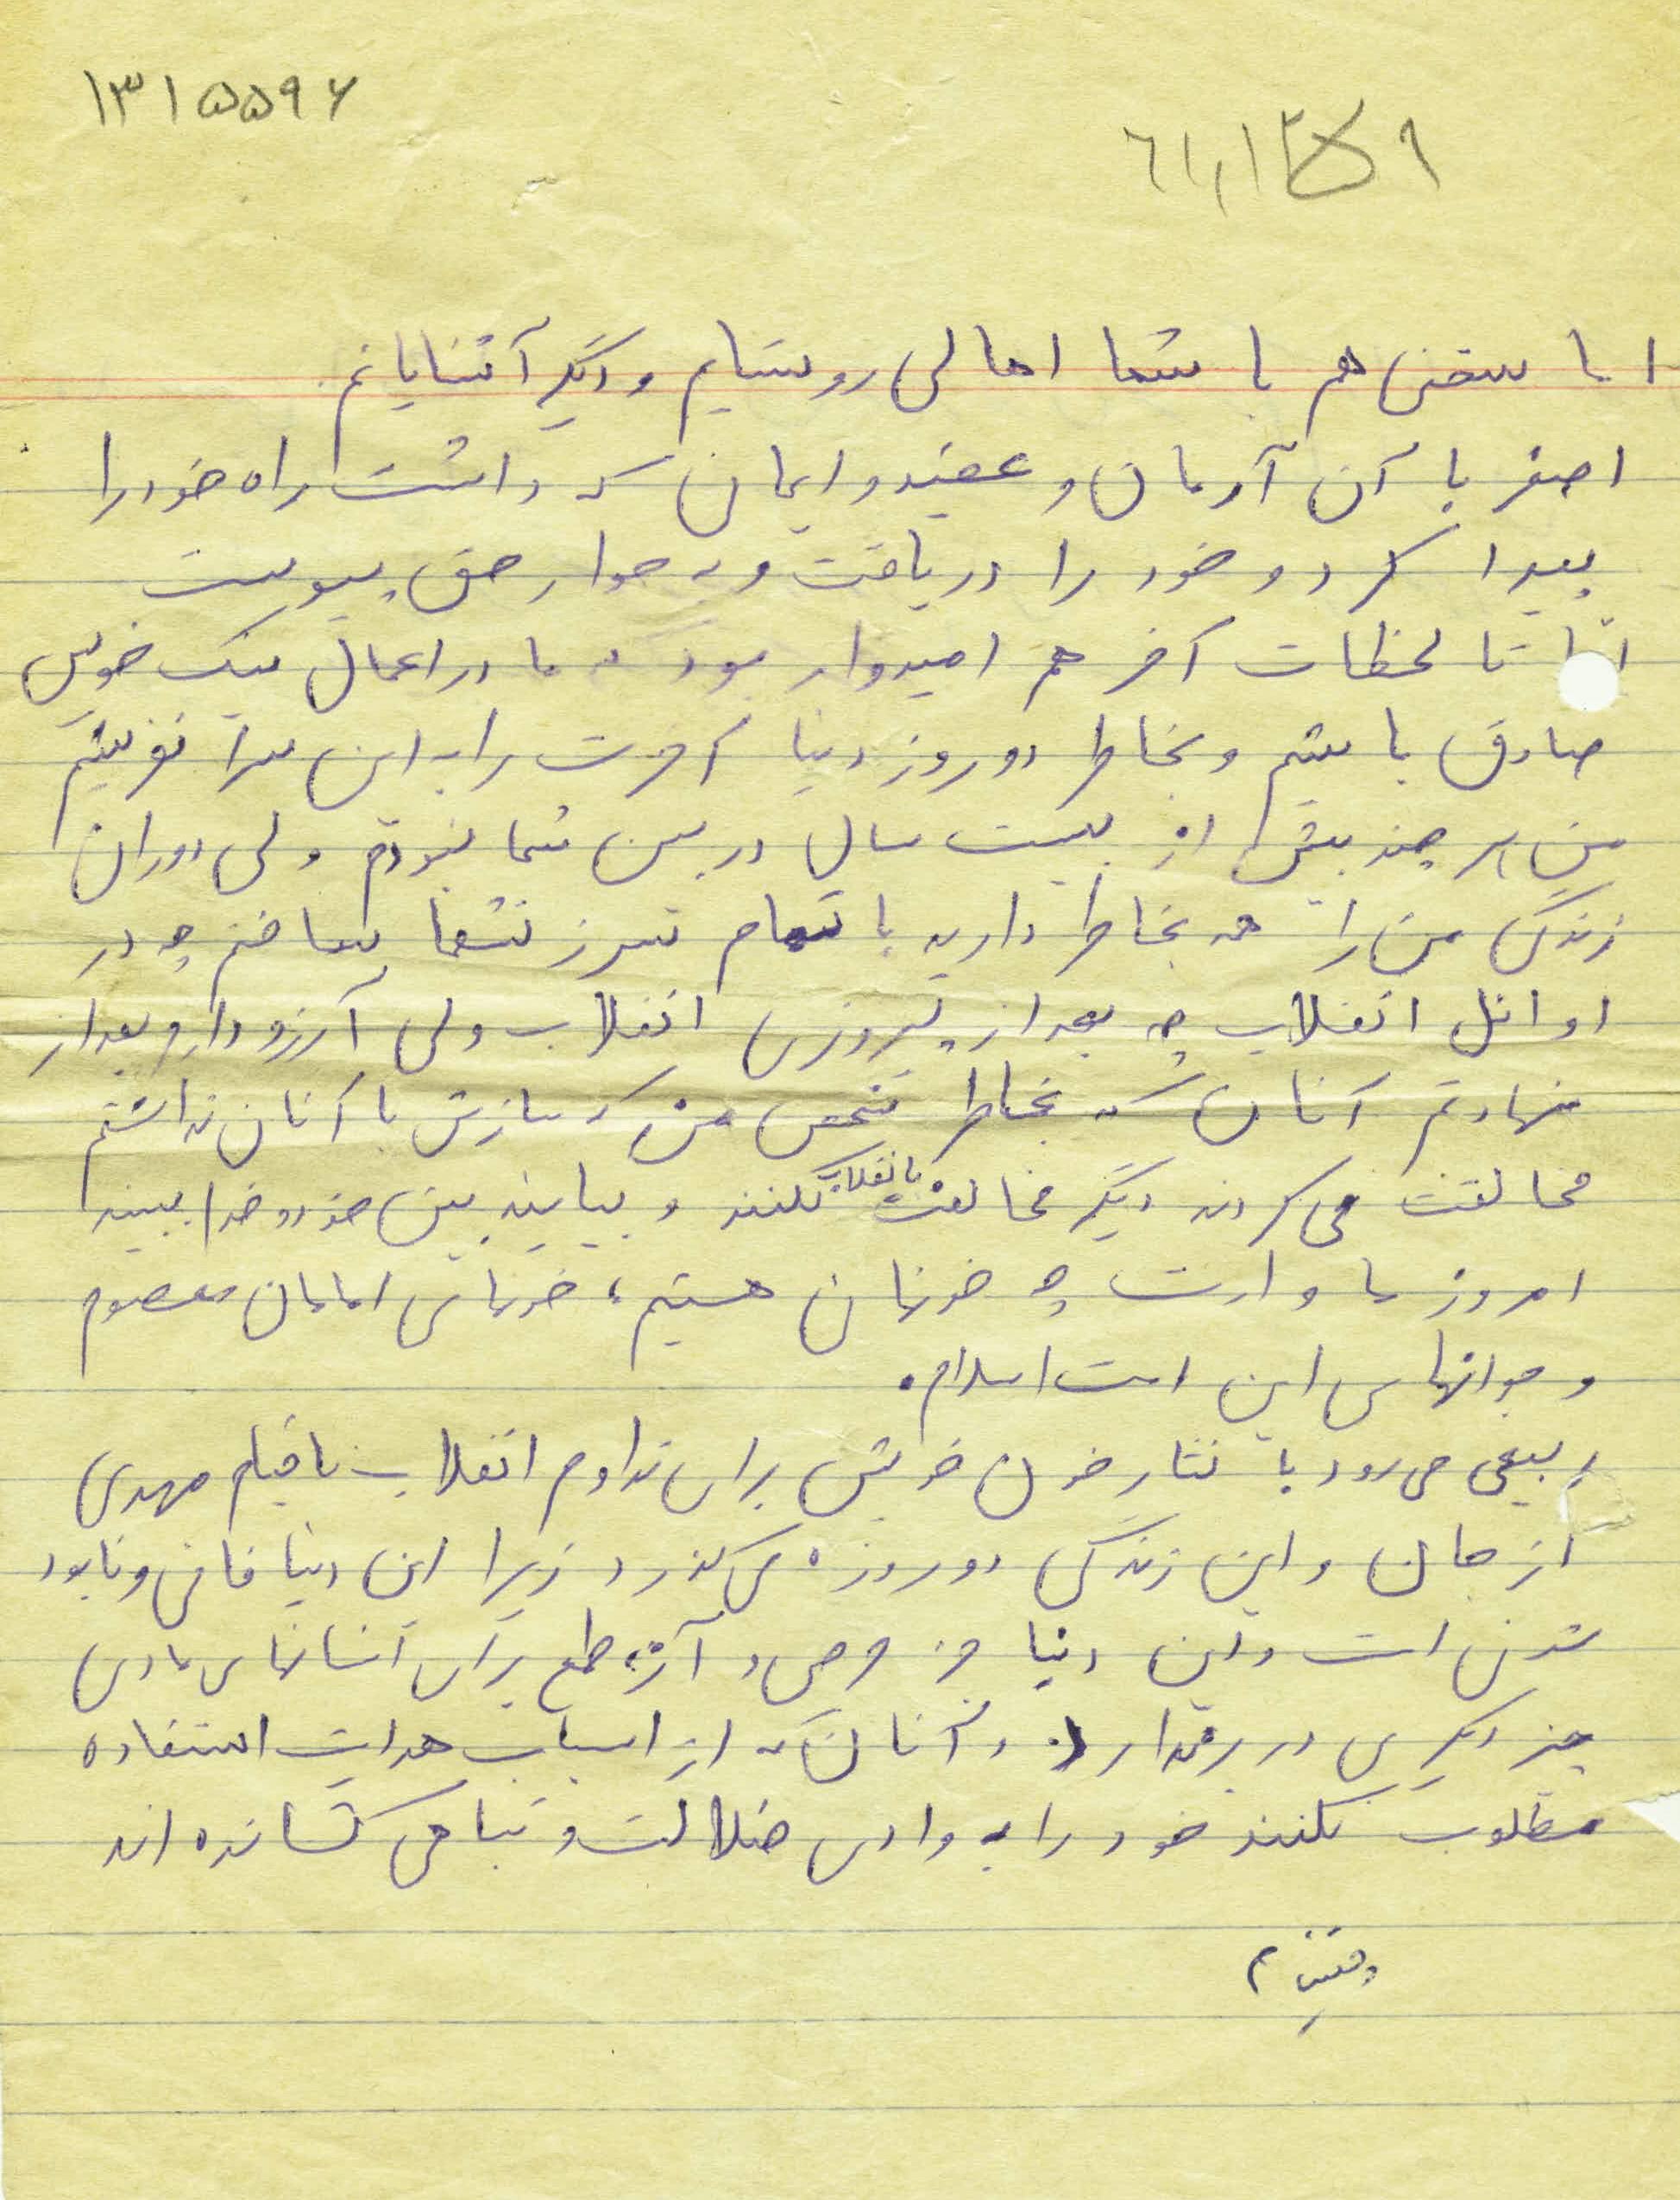 ۱۳۱۵۵۹۶
اما سخنی هم با شما اهالی روستایم و دیگر آشنایانم.
اصغر با آن آرمان و عقیده و ایمان که داشت راه خود را
پیدا کرد و خود را دریافت و به جوار حق پیوست
اما تا لحظات آخر هم امیدوار بود که ما در اعمال نیک خویش
صادق باشیم و بخاطر دو روز دنیا آخرت را به این سرا نفروشیم
من هر چند بیش از بیست سال در بین شما نبودم ولی دوران
زندگی من را همه بخاطر دارید با تمام شما ساختم چه در
اوائل انقلاب چه بعد از پیروزی انقلاب ولی آرزو دارم بعد از
شهادتم آنان که بخاطر شخص من که سازش با آنان نداشتم
مخالفت می کردند دیگر مخالفت با انقلاب نکنند و بیایند بین خود و خدا ببینند
امروز ما وارث چه خونهائی هستیم، خونهای امامان معصوم
و جوانهای این امت اسلام.
ربیعی می رود با نثار خون خویش برای تداوم انقلاب تا قیام مهدی
از جان و این زندگی دو روزه می گذرد زیرا این دنیا فانی و نابود
شدنی است و این دنیا جز حرص و آز و طمع برای انسانهای مادی
چیز دیگری در بر ندارد. و آنان که از اسباب هدایت استفاده
مطلوب نکنند خود را به وادی ضلالت و تباهی کشانده اند